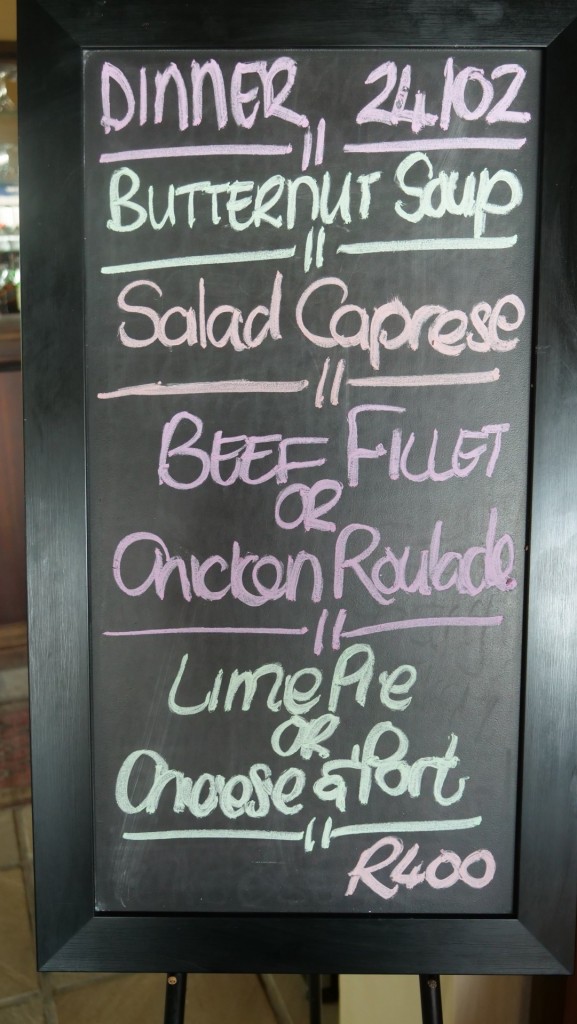 DINNER 24/02
BUTTERNUT Soup
Salad Caprese
BEEF FILLET
OR
Chicken Roulade
LIME PIE
OR
Cheese & Port
R400